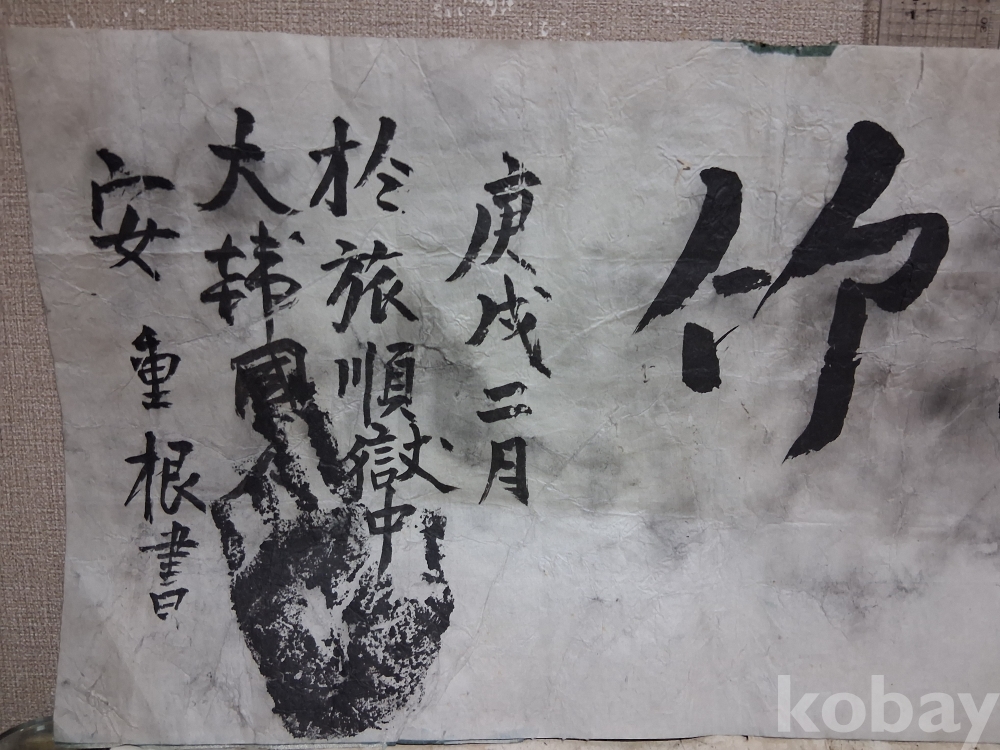 竹
庚戌二月
於旅順獄中
大韓國人
安重根書
kobay